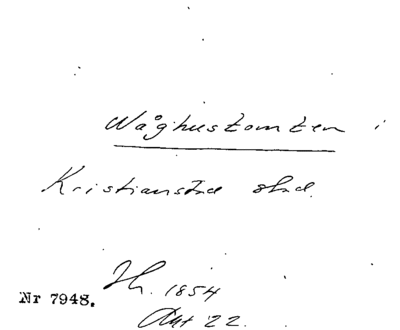 Wåghustomten i
Kristianstad stad.
H. 1854
Nr 7948.
Akt 22.